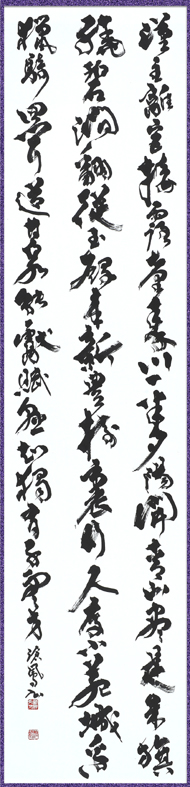 漢主離宮接露臺秦川一半夕陽開青山盡是朱旗
繞碧澗翻從玉殿來新豐樹裏行人度小苑城邊
獵騎回聞道甘泉能獻賦懸知獨有子雲才